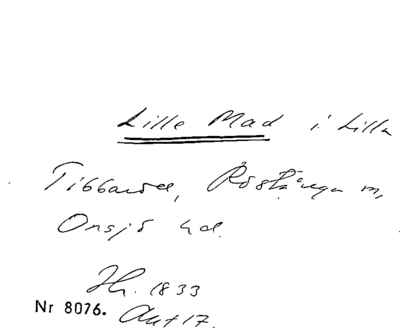 Lille Mad i Lilla
Tibbared, Röstånga m,
Onsjö hd.
Jh. 1833
Nr 8076. Akt 17.